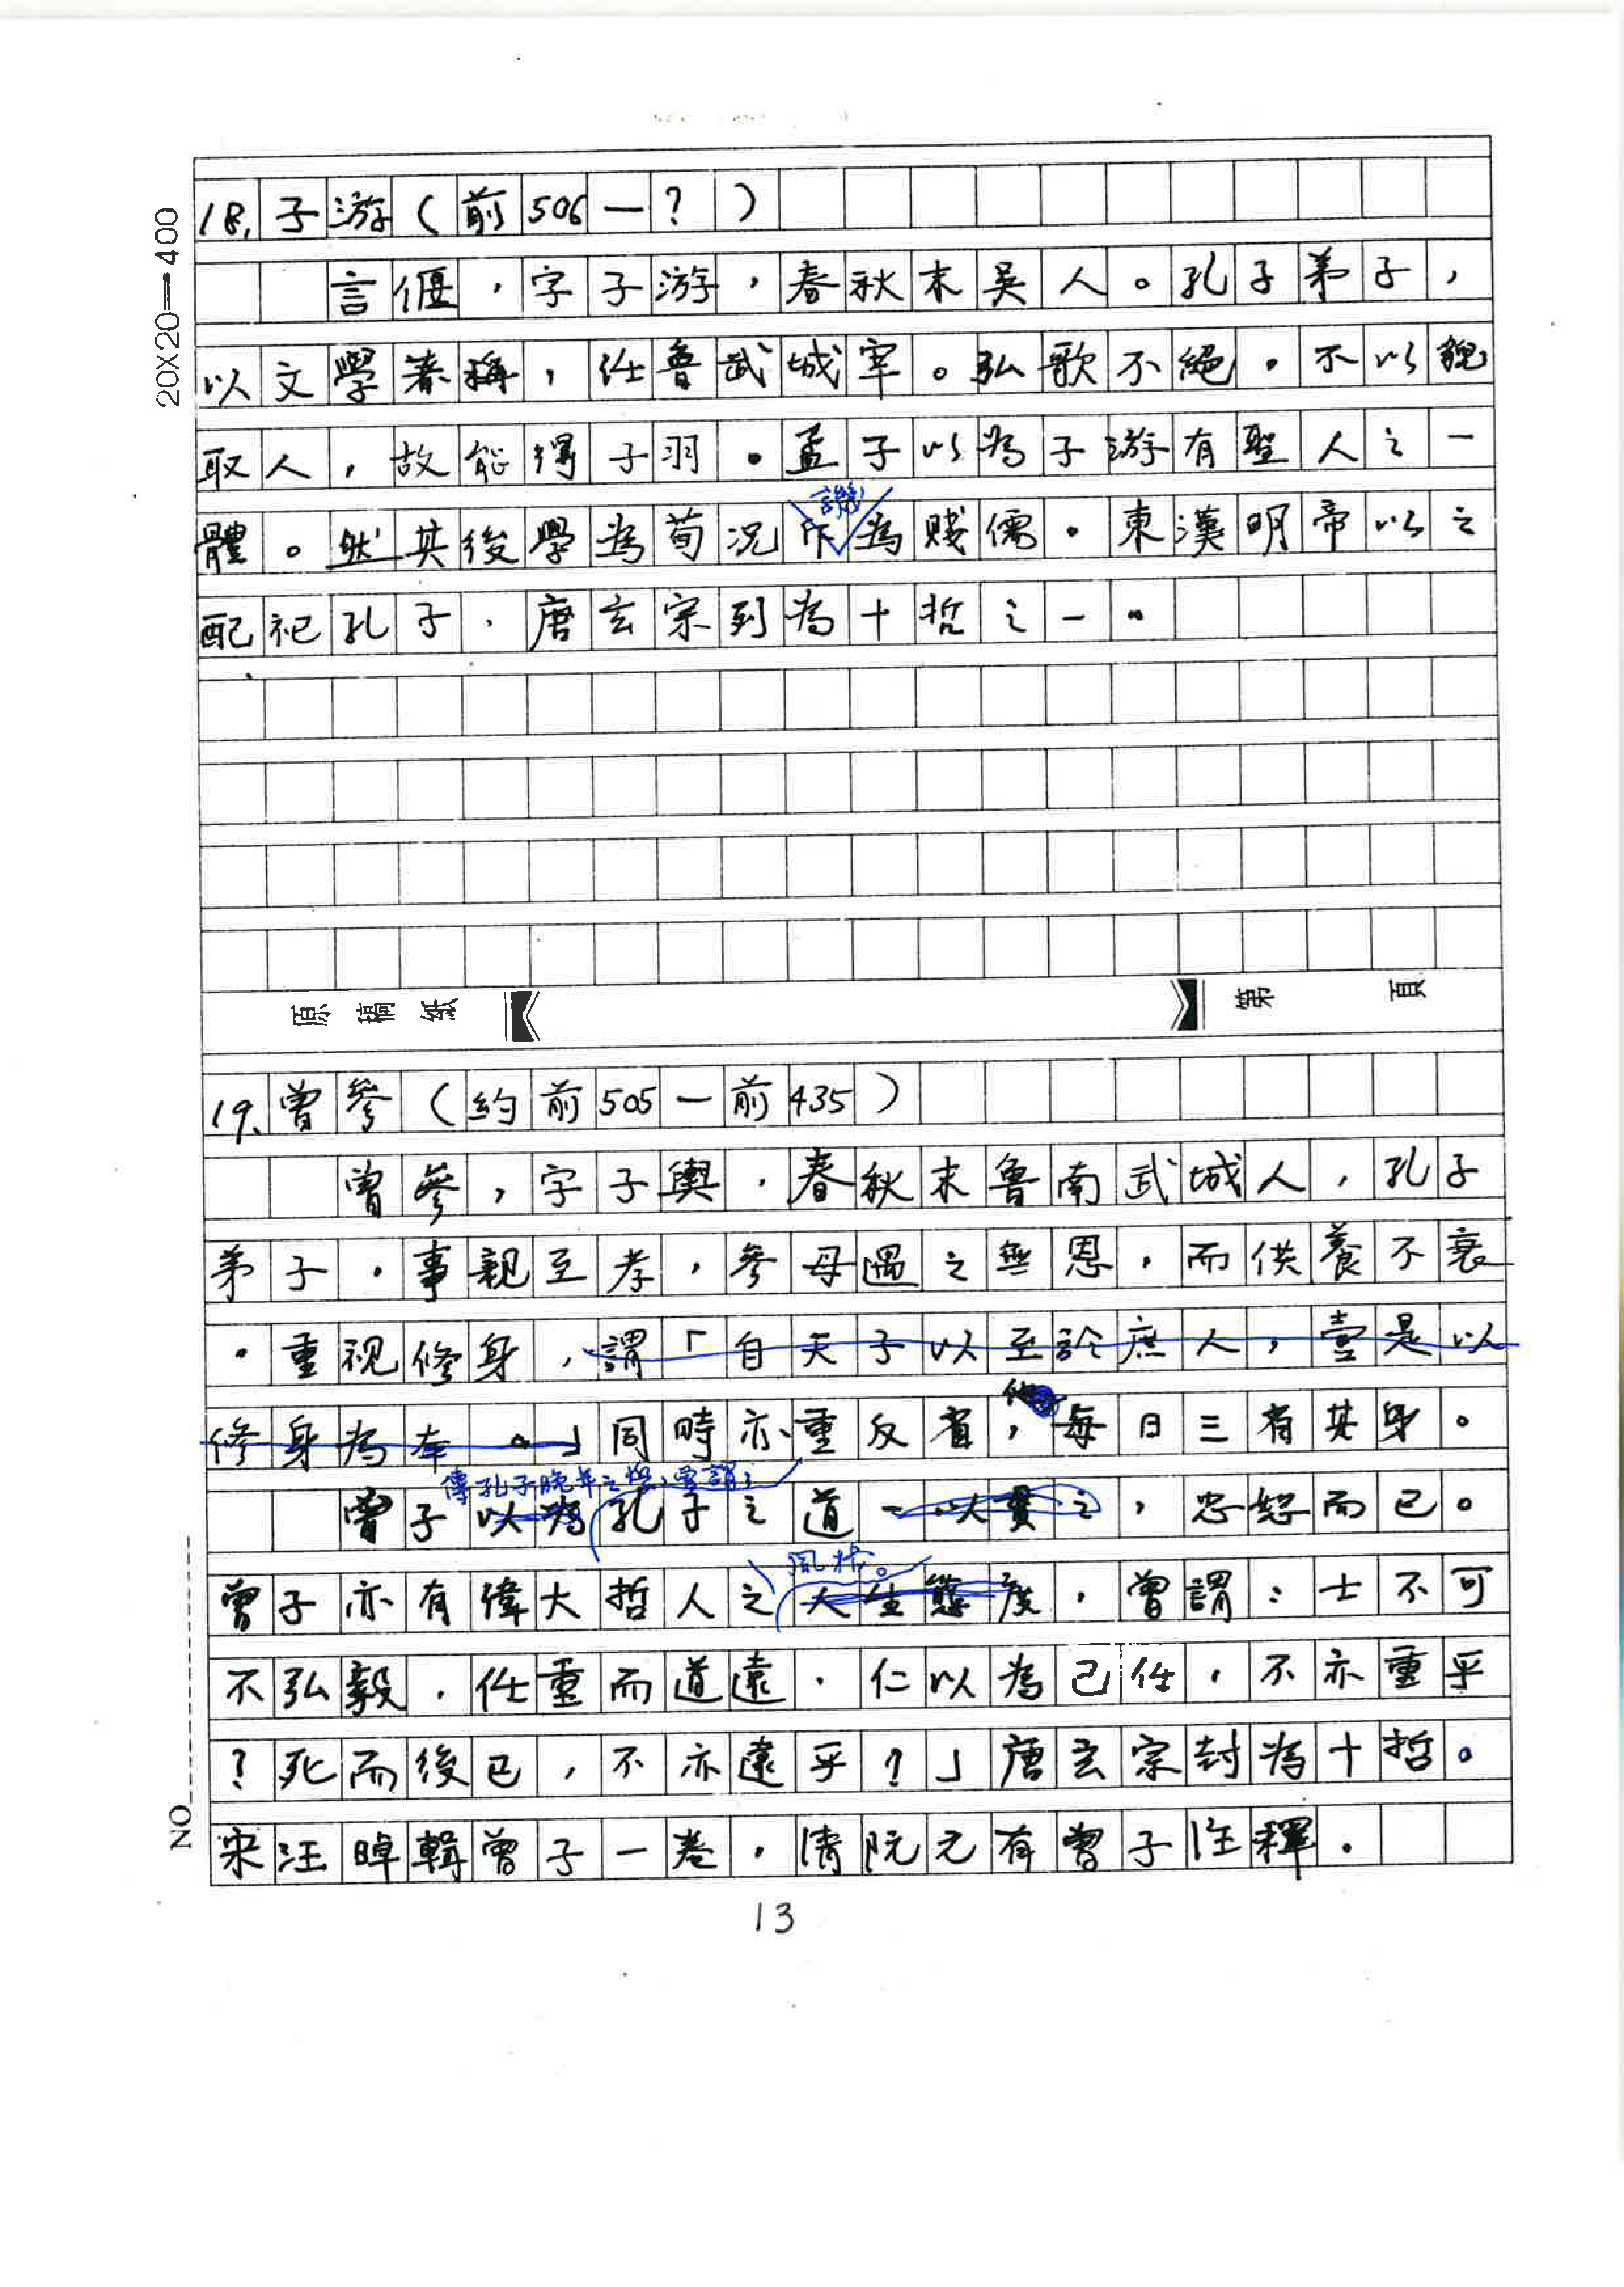 20X20=400
18.子游(前506—?)
言偃，字子游，春秋末吳人。孔子弟子，
以文學著稱，任魯武城宰。弘歌不絕。不以貌
取人，故能得子羽。孟子以為子游有聖人之一
譏
體。然其後學為荀況斥為賤儒。東漢明帝以之
配祀孔子，唐玄宗列為十哲之一。
原稿紙 第 頁
19.曾參(約前505—前435)
曾參，字子輿，春秋末魯南武城人，孔子
弟子。事親至孝，參母遇之無恩，而供養不衰
。重視修身，謂「自天子以至於庶人，壹是以
修身為本。」同時亦重反省，每日三省其身。
傳孔子晚年之學，曾謂：
曾子以為孔子之道一以貫之，忠恕而已。
風格。
曾子亦有偉大哲人之人生態度，曾謂：士不可
不弘毅，任重而道遠。仁以為己任，不亦重乎
？死而後已，不亦遠乎？」唐玄宗封為十哲。
宋汪晫輯曾子一卷，清阮元有曾子注釋。
NO
13